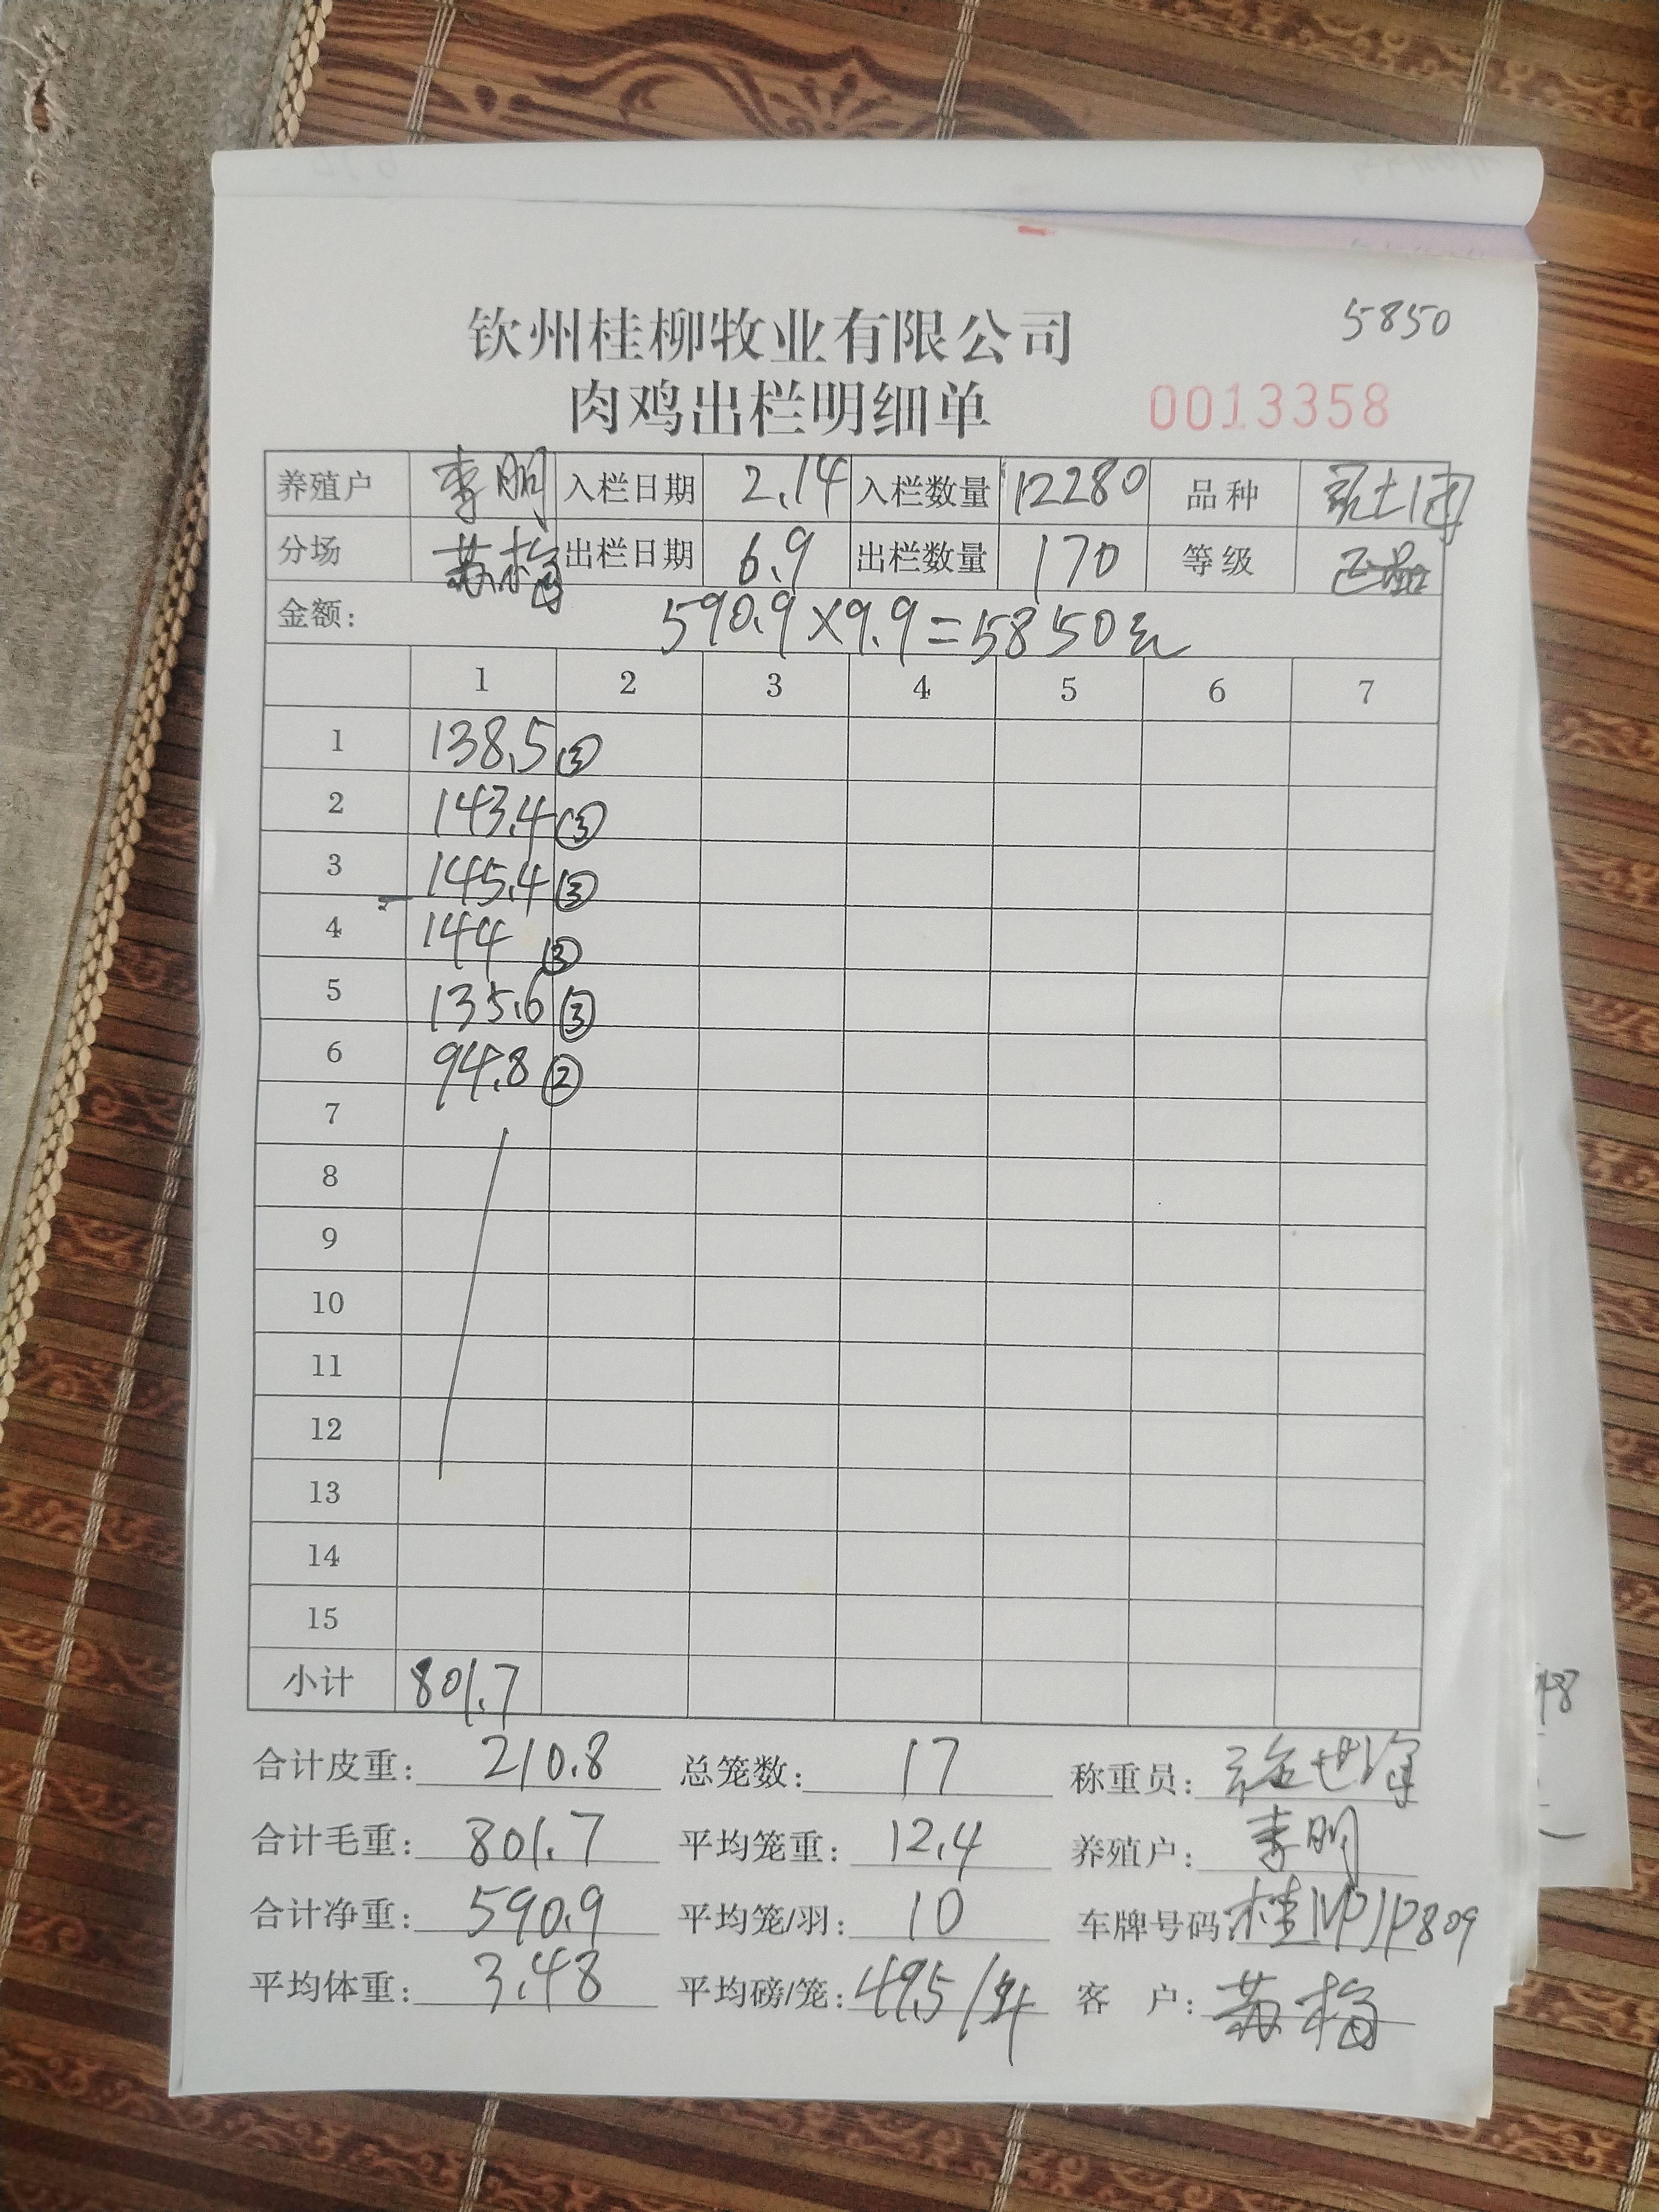 5850
钦州桂柳牧业有限公司
肉鸡出栏明细单 0013358
养殖户 李明 入栏日期 2.14 入栏数量 12280 品种
分场 苏梅 出栏日期 6.9 出栏数量 170 等级 正品
金额: 590.9×9.9=5850元
1 2 3 4 5 6 7
1 138.5 ③
2 143.4 ③
3 145.4 ③
4 144 ③
5 135.6 ③
6 94.8 ②
7
8
9
10
11
12
13
14
15
小计 801.7
合计皮重: 210.8 总笼数: 17 称重员:
合计毛重: 801.7 平均笼重: 12.4 养殖户: 李明
合计净重: 590.9 平均笼/羽: 10 车牌号码:
平均体重: 3.48 平均磅/笼: 客 户: 苏梅